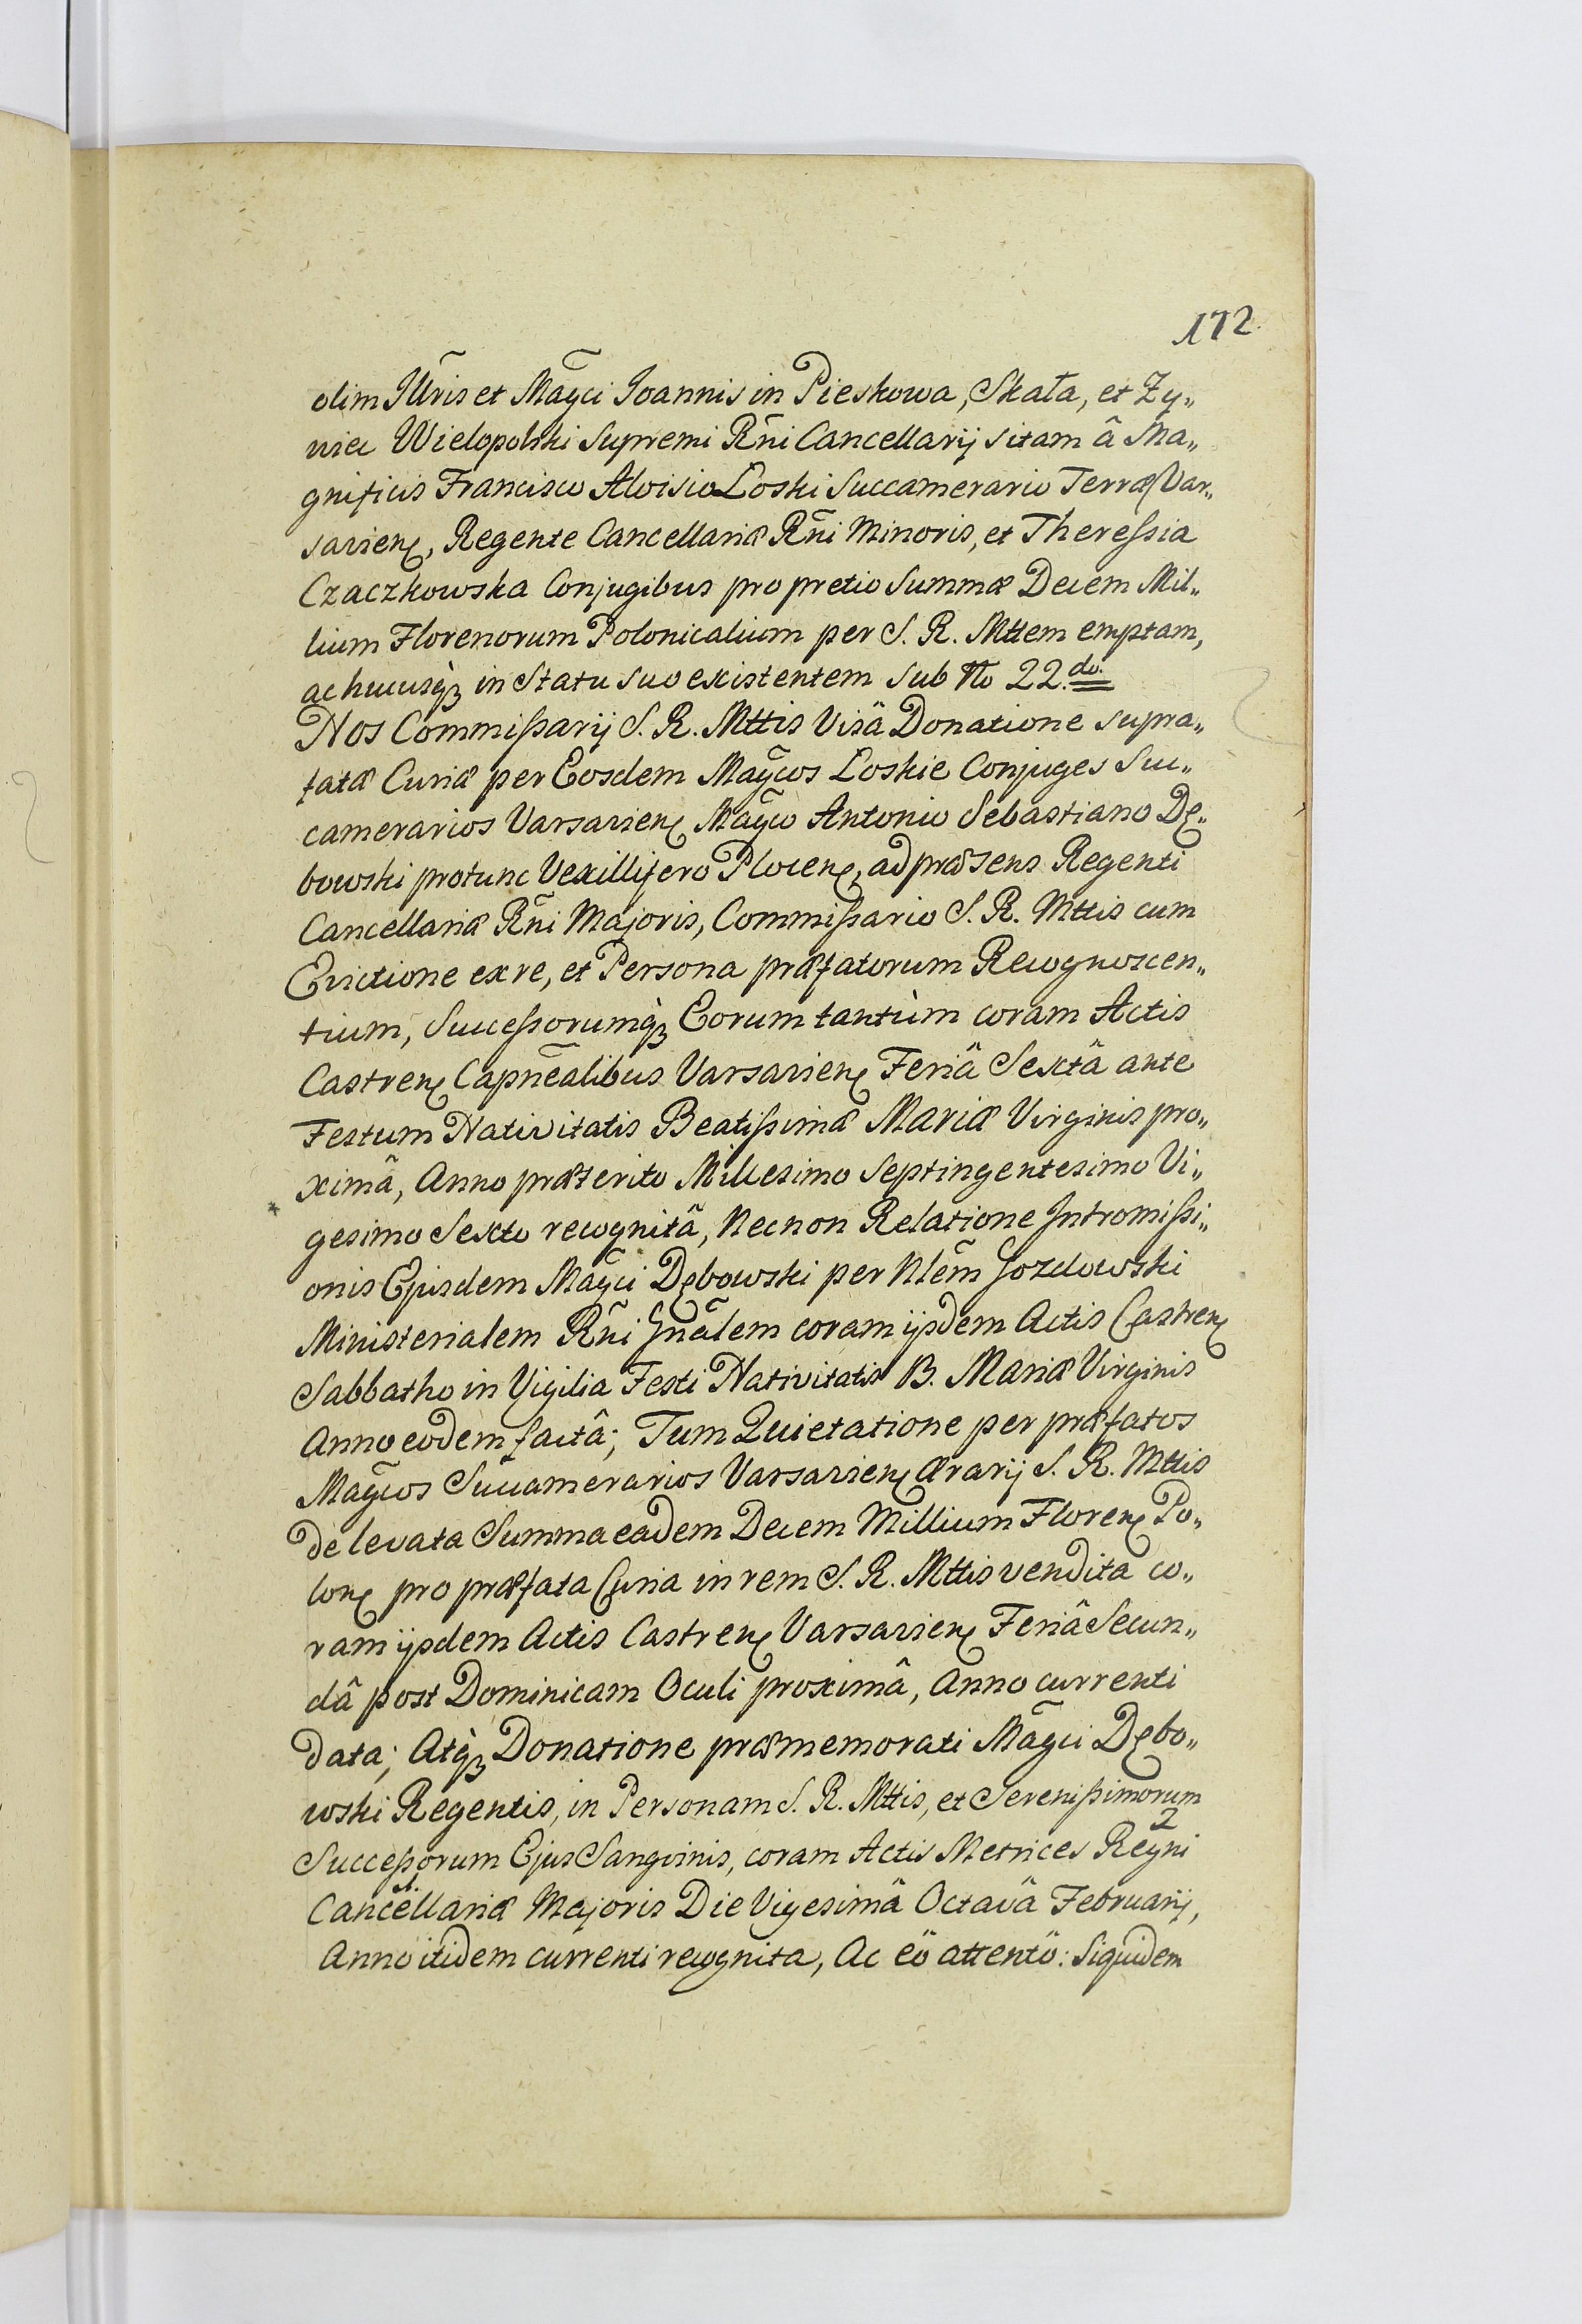 172
olim Illr̃is et Mag̃ci Joannis in Pieskowa, Skała, et Zy„
wiec Wielopolski Supremi Rñi Cancellarij sitam â Ma„
gnificis Francisco Aloisio Loski Succamerario Terræ Var„
savien̄, Regente Cancellariæ Rñi Minoris, et Theressia
Czaczkowska Conjugibus pro pretio Summæ Decem Mil„
lium Florenorum Polonicalium per S. R. Mttem emptam,
ac hucusq̀ꝫ in Statu suo existentem sub No 22.do
Nos Commissarij S. R. Mttis Visâ Donatione supra„
fatæ Curiæ per Eosdem Mag̃cos Loskie Conjuges Suc„
camerarios Varsavien̄ Mag̃co Antonio Sebastiano Dę„
bowski protunc Vexillifero Plocen̄, ad præsens Regenti
Cancellariæ Rñi Majoris, Commissario S. R. Mttis cum
Evictione ex re, et Persona præfatorum Recognoscen„
tium, Successorumq̀ꝫ Eorum tantùm coram Actis
Castren̄ Capnẽalibus Varsavien̄ Feriâ Sextâ ante
Festum Nativitatis Beatissimæ Mariæ Virginis pro„
ximâ, Anno præterito Millesimo Septingentesimo Vi„
gesimo Sexto recognitâ, Necnon Relatione Intromissi„
onis Ejusdem Mag̃ci Dębowski per Nlẽm Gozdowski
Ministerialem Rñi Gnãlem coram ijsdem Actis Castren̄
Sabbatho in Vigilia Festi Nativitatis B. Mariæ Virginis
Anno eodem factâ; Tum Quietatione per præfatos
Mag̃cos Succamerarios Varsavien̄ Ærarij S. R. Mttis
de levata Summa eadem Decem Millium Floren̄ Po„
lon̄ pro præfata Curia in rem S. R. Mttis vendita co„
ram ijsdem Actis Castren̄ Varsavien̄ Feriâ Secun„
dâ post Dominicam Oculi proximâ, Anno currenti
data; Atq̀ꝫ Donatione præmemorati Mag̃ci Dębo„
wski Regentis, in Personam S. R. Mttis, et Serenissimorum
Successorum Ejus Sangvinis, coram Actis Metrices Regni 2
Cancellariæ 1. Majoris Die Vigesimâ Octavâ Februarij,
Anno itidem currenti recognita, Ac eö attentö: Siquidem